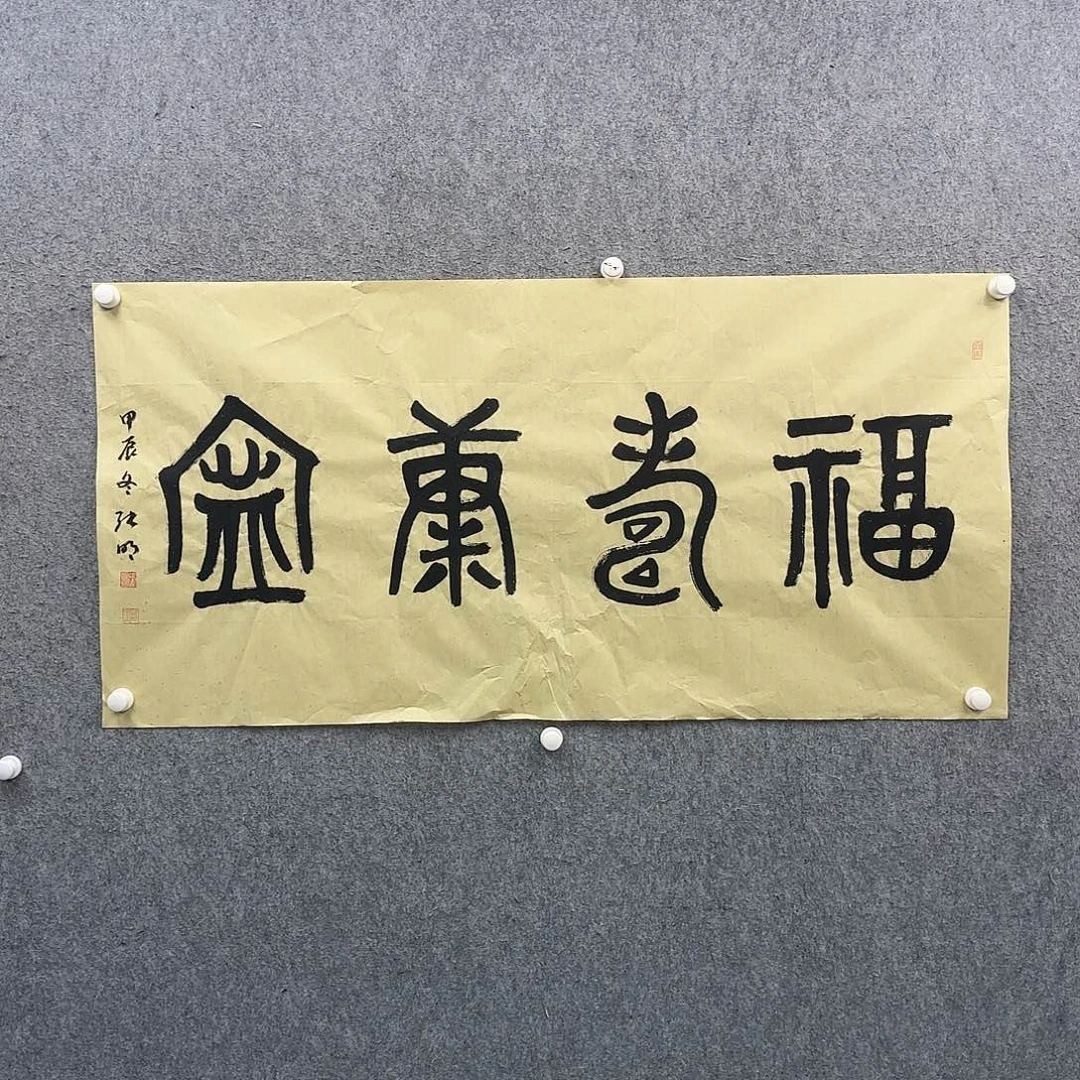 福壽康寧
甲辰冬張明